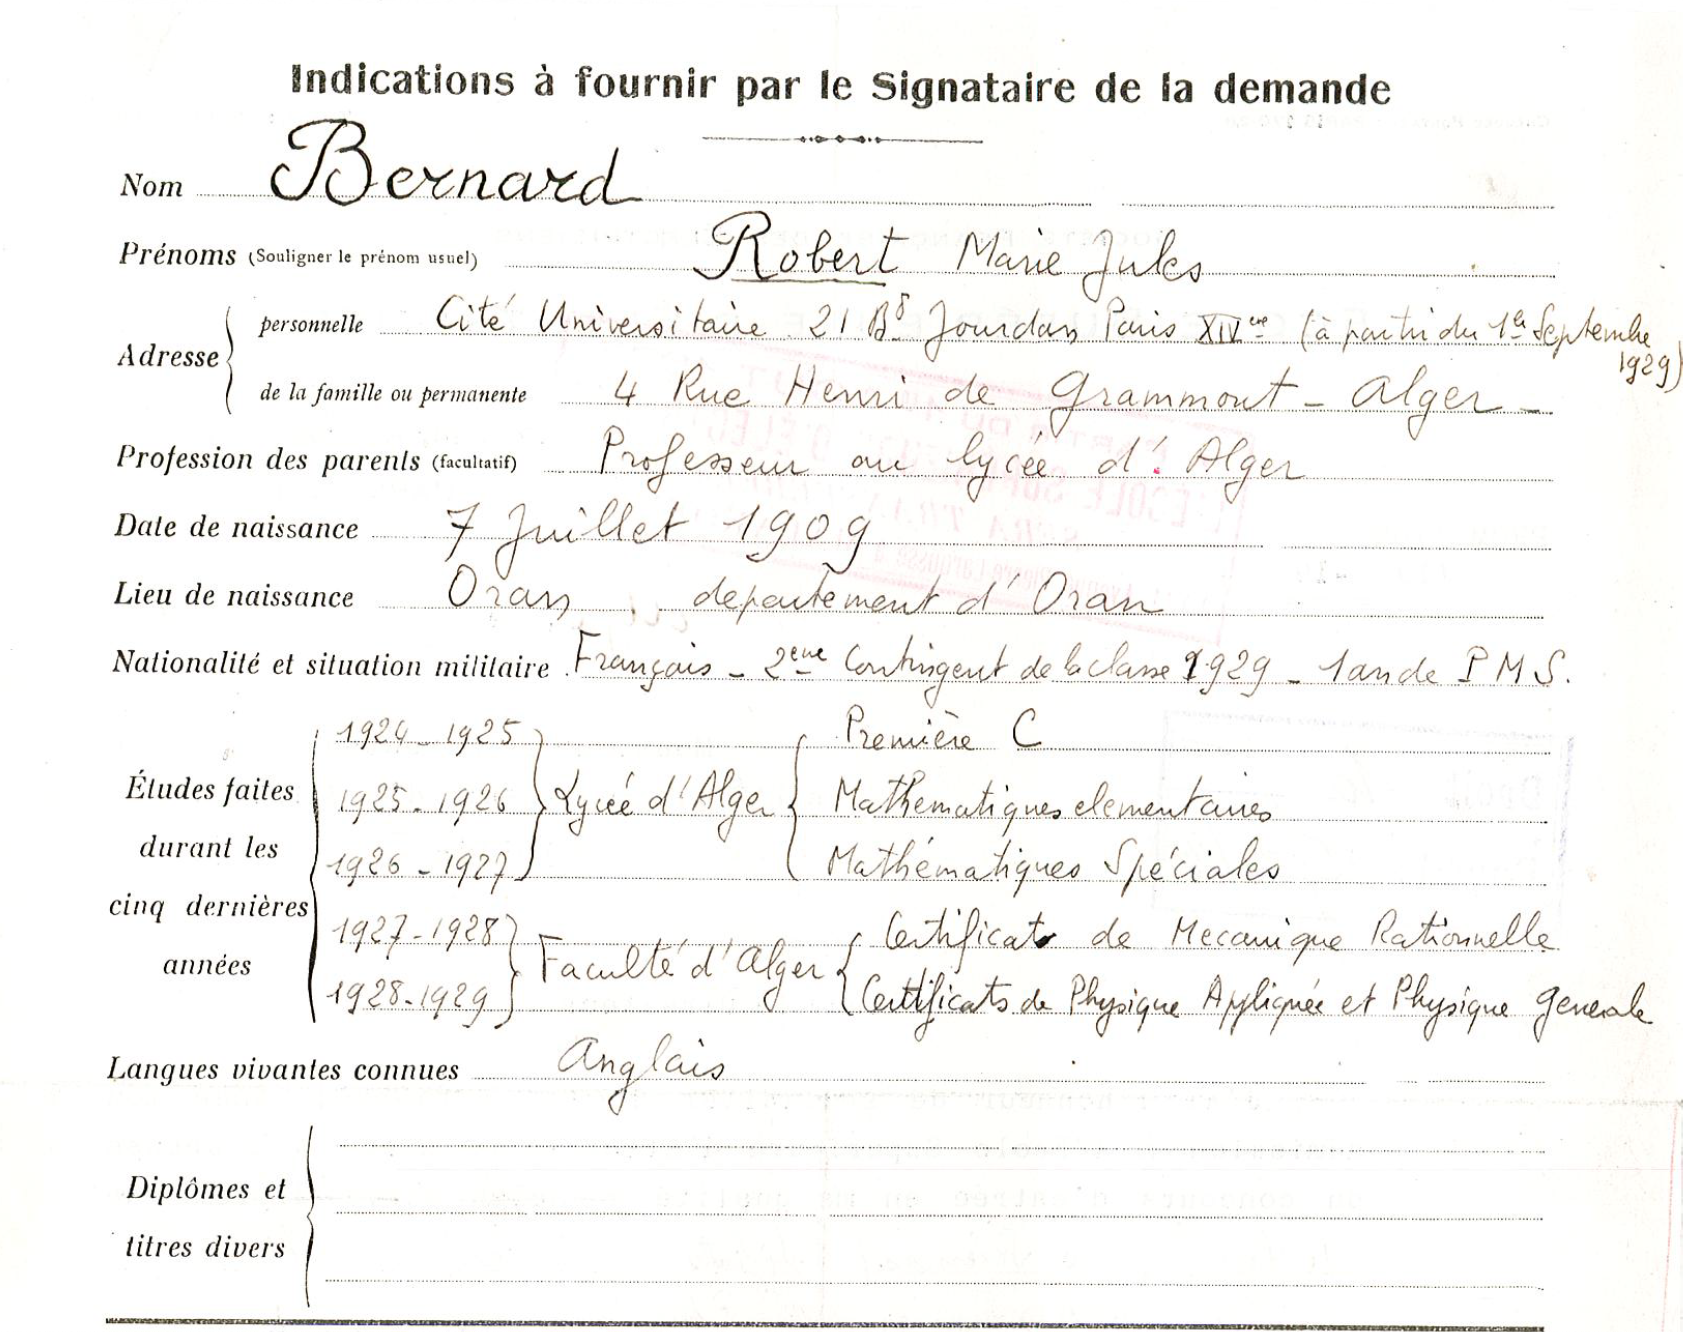 Indications à fournir par le Signataire de la demande
Nom Bernard
Prénoms (Souligner le prénom usuel) Robert Marie Jules
Adresse
personnelle Cité Universitaire 21 Bd Jourdan Paris XIVeme (à partir du 1er Septembre 1929)
de la famille ou permanente 4 Rue Henri de Grammont - Alger -
Profession des parents (facultatif) Professeur au lycée d'Alger
Date de naissance 7 Juillet 1909
Lieu de naissance Oran, departement d'Oran
Nationalité et situation militaire Français - 2eme Contingent de la classe 1929 - 1 an de P M S.
Études faites durant les cinq dernières années
1924-1925 Première C
1925-1926 Lycée d'Alger Mathematiques elementaires
1926-1927 Mathématiques Spéciales
1927-1928 Certificat de Mecanique Rationnelle
Faculté d'Alger
1928-1929 Certificats de Physique Appliquée et Physique Generale
Langues vivantes connues Anglais
Diplômes et
titres divers